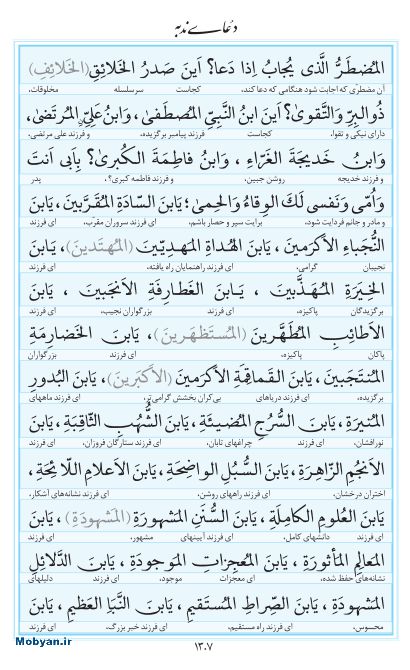 دعای ندبه
المُضطَرُّ الَّذی یُجابُ اِذا دَعا؟ اَینَ صَدرُ الخَلائِقِ (الخَلائِفِ)
آن مضطری که اجابت شود هنگامی که دعا کند. کجاست سرسلسله مخلوقات،
ذُوالبِرِّ وَالتَّقویٰ؟ اَینَ ابنُ النَّبِیِّ المُصطَفیٰ، وَابنُ عَلِیٍّ المُرتَضیٰ،
دارای نیکی و تقوا. کجاست فرزند پیامبر برگزیده، و فرزند علی مرتضی،
وَابنُ خَدیجَةَ الغَرّاءِ ، وَابنُ فاطِمَةَ الکُبریٰ؟ بِاَبی اَنتَ
و فرزند خدیجه روشن جبین، و فرزند فاطمه کبری؟، پدر
وَاُمّی وَنَفسی لَکَ الوِقاءُ وَالحِمیٰ؛ یَابنَ السّادَةِ المُقَرَّبینَ ، یَابنَ
و مادر و جانم فردایت شود، برایت سپر و حصار باشم، ای فرزند سروران مقرّب، ای فرزند
النُّجَباءِ الاَکرَمینَ، یَابنَ الهُداةِ المَهدِیّینَ (المُهتَدینَ)، یَابنَ
نجیبان گرامی، ای فرزند راهنمایان راه یافته، ای فرزند
الخِیَرَةِ المُهَذَّبینَ ، یَابنَ الغَطارِفَةِ الاَنجَبینَ ، یَابنَ
برگزیدگان پاکیزه، ای فرزند بزرگواران نجیب، ای فرزند
الاَطائِبِ المُطَهَّرینَ (المُستَظهَرینَ)، یَابنَ الخَضارِمَةِ
پاکان پاکیزه، ای فرزند بزرگواران
المُنتَجَبینَ، یَابنَ القَماقِمَةِ الاَکرَمینَ (الاَکبَرینَ)، یَابنَ البُدورِ
برگزیده، ای فرزند دریاهای بی‌کران بخشش گرامی‌تر، ای فرزند ماههای
المُنیرَةِ، یَابنَ السُّرُجِ المُضیئَةِ، یَابنَ الشُّهُبِ الثّاقِبَةِ، یَابنَ
نورافشان، ای فرزند چراغهای تابان، ای فرزند ستارگان فروزان، ای فرزند
الاَنجُمِ الزّاهِرَةِ، یَابنَ السُّبُلِ الواضِحَةِ، یَابنَ الاَعلامِ اللّائِحَةِ،
اختران درخشان، ای فرزند راههای روشن، ای فرزند نشانه‌های آشکار،
یَابنَ العُلومِ الکامِلَةِ، یَابنَ السُّنَنِ المَشهورَةِ (المَشهودَةِ)، یَابنَ
ای فرزند دانشهای کامل، ای فرزند آیینهای مشهور، ای فرزند
المَعالِمِ المَأثورَةِ، یَابنَ المُعجِزاتِ المَوجودَةِ، یَابنَ الدَّلائِلِ
نشانه‌های حفظ شده، ای فرزند معجزات موجود، ای فرزند دلیلهای
المَشهودَةِ، یَابنَ الصِّراطِ المُستَقیمِ، یَابنَ النَّبَاِ العَظیمِ، یَابنَ
محسوس، ای فرزند راه مستقیم، ای فرزند خبر بزرگ، ای فرزند
۱۳۰۷
Mobyan.ir